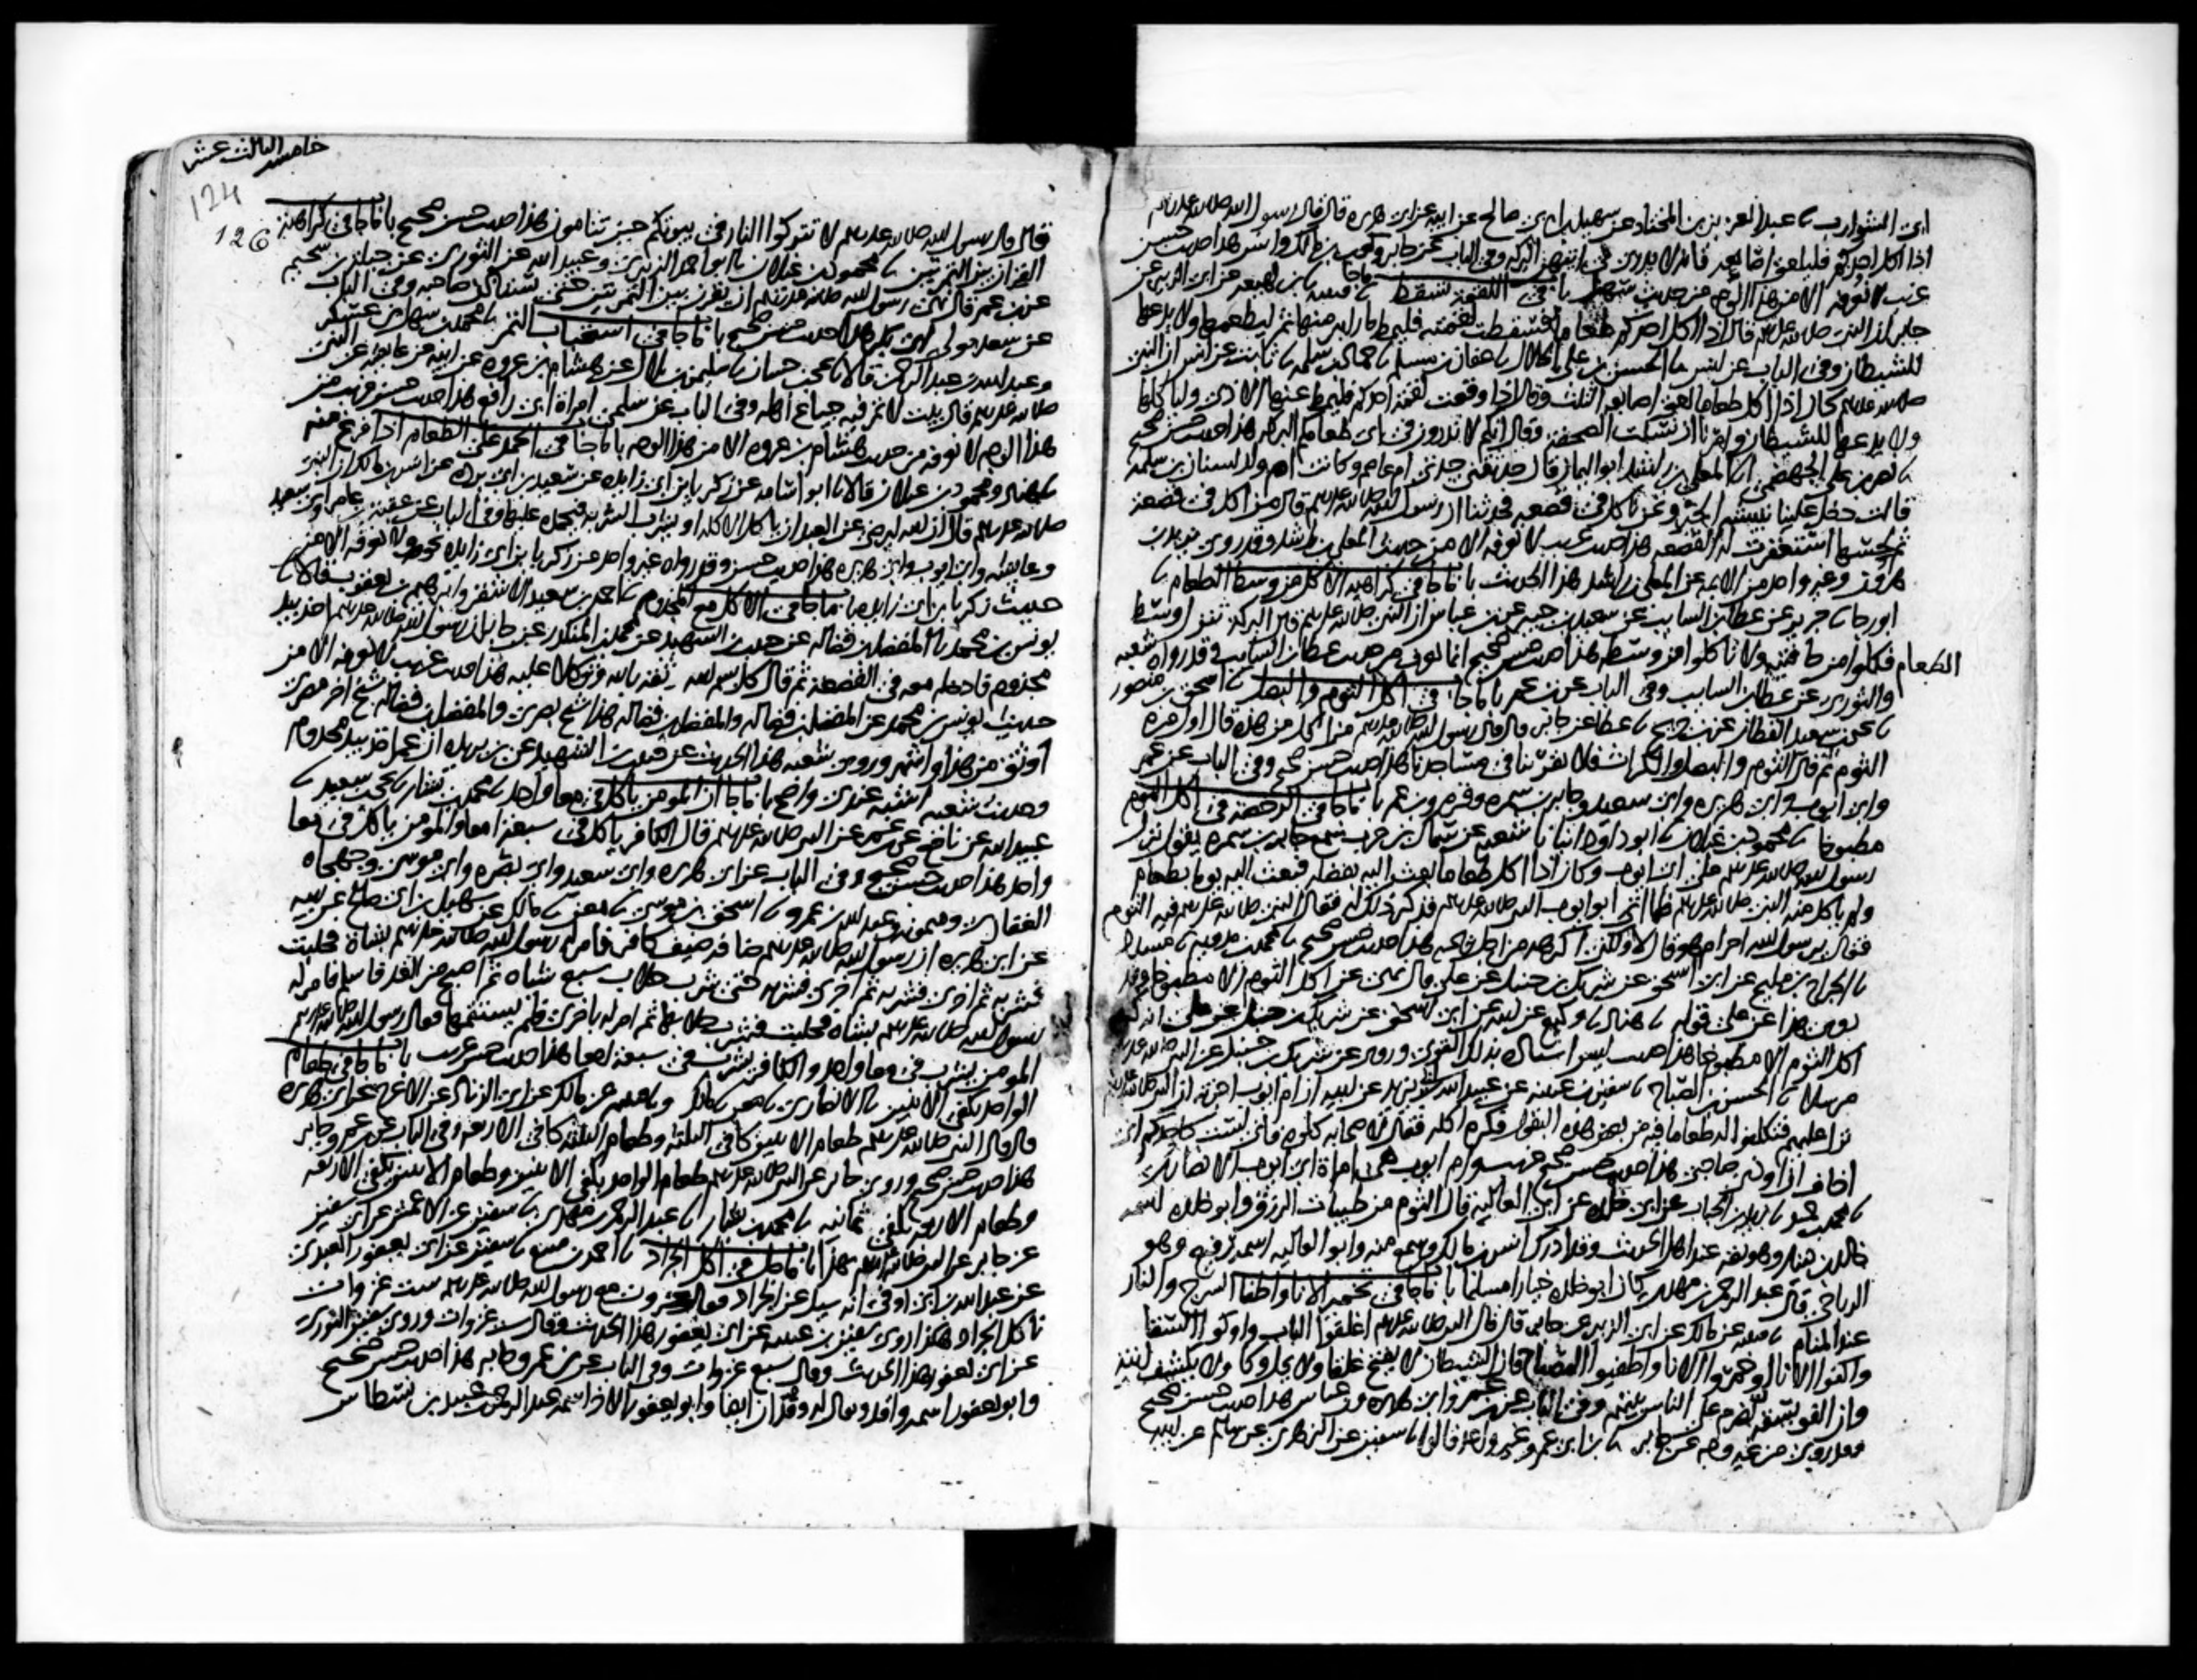 ابي الشوارب نا عبد العزيز بن المختار عن سهيل بن ابي صالح عن ابيه عن ابي هريرة قال قال رسول الله صلى الله عليه وسلم
اذا اكل احدكم فليلعق اصابعه فانه لا يدري في ايتهن البركة وفي الباب عن جابر وكعب بن مالك وانس هذا حديث حسن
غريب لا نعرفه الا من هذا الوجه من حديث سهيل باب في اللقمة تسقط نا قتيبة نا بن لهيعة عن ابي الزبير عن
جابر ان النبي صلى الله عليه وسلم قال اذا اكل احدكم طعاما فسقطت لقمته فليمط ما رابه منها ثم ليطعمها ولا يدعها
للشيطان وفي الباب عن انس نا الحسن بن علي الخلال نا عفان بن مسلم نا حماد بن سلمة نا ثابت عن انس ان النبي
صلى الله عليه وسلم كان اذا اكل طعاما لعق اصابعه الثلث وقال اذا وقعت لقمة احدكم فليمط عنها الاذى ولياكلها
ولا يدعها للشيطان وامرنا ان نسلت الصحفة وقال انكم لا تدرون في اي طعامكم البركة هذا حديث حسن صحيح
نا نصر بن علي الجهضمي انا المعلى بن راشد ابو اليمان قال حدثتني جدتي ام عاصم وكانت ام ولد لسنان بن سلمة
قالت دخل علينا نبيشة الخير ونحن ناكل في قصعة فحدثنا ان رسول الله صلى الله عليه وسلم قال من اكل في قصعة
ثم لحسها استغفرت له القصعة هذا حديث غريب لا نعرفه الا من حديث المعلى بن راشد وقد روى يزيد بن
هرون وغير واحد من الائمة عن المعلى بن راشد هذا الحديث باب ما جا في كراهية الاكل من وسط الطعام نا
ابو رجا نا جرير عن عطا بن السايب عن سعيد بن جبير عن بن عباس ان النبي صلى الله عليه وسلم قال البركة تنزل وسط
الطعام فكلوا من حافتيه ولا تاكلوا من وسطه هذا حديث حسن صحيح انما يعرف من حديث عطا بن السايب وقد رواه شعبة
والثوري عن عطا بن السايب وفي الباب عن بن عمر باب ما جا في اكل الثوم والبصل نا اسحق بن منصور
نا يحيى بن سعيد القطان عن بن جريج نا عطا عن جابر قال قال رسول الله صلى الله عليه وسلم من اكل من هذه قال اول مرة
الثوم ثم قال الثوم والبصل والكراث فلا يقربنا في مساجدنا هذا حديث حسن صحيح وفي الباب عن عمر
وابي ايوب وابي هريرة وابي سعيد وجابر بن سمرة وقرة وبن عمر باب ما جا في الرخصة في اكل الثوم
مطبوخا نا محمود بن غيلان نا ابو داود انبانا شعبة عن سماك بن حرب سمع جابر بن سمرة يقول نزل
رسول الله صلى الله عليه وسلم على ابي ايوب وكان اذا اكل طعاما بعث اليه بفضله فبعث اليه يوما بطعام
ولم ياكل منه النبي صلى الله عليه وسلم فلما اتى ابو ايوب النبي صلى الله عليه وسلم فذكر ذلك له فقال النبي صلى الله عليه وسلم فيه الثوم
فقال يرسول الله احرام هو قال لا ولكني اكرهه من اجل ريحه هذا حديث حسن صحيح نا محمد بن مدويه نا مسدد
نا الجراح بن مليح عن ابي اسحق عن شريك بن حنبل عن علي قال نهى عن اكل الثوم الا مطبوخا وقد
روي هذا عن علي قوله نا هناد نا وكيع عن ابيه عن ابي اسحق عن شريك بن حنبل عن علي انه كره
اكل الثوم الا مطبوخا هذا حديث ليس اسناده بذلك القوي وروي عن شريك بن حنبل عن النبي صلى الله عليه وسلم
مرسلا نا الحسن بن الصباح نا سفين بن عيينة عن عبيد الله بن ابي يزيد عن ابيه ان ام ايوب اخبرته ان النبي صلى الله عليه وسلم
نزل عليهم فتكلفوا له طعاما فيه من بعض هذه البقول فكره اكله فقال لاصحابه كلوه فاني لست كاحدكم اني
اخاف ان اوذي صاحبي هذا حديث حسن صحيح غريب وام ايوب هي امراة ابي ايوب الانصاري
نا محمد بن حميد نا زيد بن الحباب عن ابي خلدة عن ابي العالية قال الثوم من طيبات الرزق وابو خلدة اسمه
خالد بن دينار وهو ثقة عند اهل الحديث وقد ادرك انس بن مالك وسمع منه وابو العالية اسمه رفيع وهو
الرياحي قال عبد الرحمن بن مهدي كان ابو خلدة خيارا مسلما باب ما جا في تخمير الانا واطفا السرج والنار
عند المنام نا قتيبة عن مالك عن ابي الزبير عن جابر قال قال النبي صلى الله عليه وسلم اغلقوا الباب واوكوا السقا
واكفوا الانا او خمروا الانا واطفيوا المصباح فان الشيطان لا يفتح غلقا ولا يحل وكا ولا يكشف انية
وان الفويسقة تضرم على الناس بيتهم وفي الباب عن بن عمر وابي هريرة وبن عباس هذا حديث حسن صحيح
وقد روي من غير وجه عن جابر نا بن ابي عمر وغير واحد قالوا نا سفين عن الزهري عن سالم عن ابيه
خامسة الثالث عشر
124
126
قال قال رسول الله صلى الله عليه وسلم لا تتركوا النار في بيوتكم حين تنامون هذا حديث حسن صحيح باب ما جا في كراهية
القران بين التمرتين نا محمود بن غيلان نا ابو احمد الزبيري وعبيد الله عن الثوري عن جبلة بن سحيم
عن بن عمر قال نهى رسول الله صلى الله عليه وسلم ان يقرن بين التمرتين حتى يستاذن صاحبه وفي الباب
عن سعد مولى ابي بكر هذا حديث حسن صحيح باب ما جا في استحباب التمر نا محمد بن سهل بن عسكر
وعبد الله بن عبد الرحمن قالا نا يحيى بن حسان نا سليمن بن بلال عن هشام بن عروة عن ابيه عن عايشة عن النبي
صلى الله عليه وسلم قال بيت لا تمر فيه جياع اهله وفي الباب عن سلمى امراة ابي رافع هذا حديث حسن غريب من
هذا الوجه لا نعرفه من حديث هشام بن عروة الا من هذا الوجه باب ما جا في الحمد على الطعام اذا فرغ منه
نا هناد ومحمود بن غيلان قالا نا ابو اسامة عن زكريا بن ابي زايدة عن سعيد بن ابي بردة عن انس بن مالك ان النبي
صلى الله عليه وسلم قال ان الله ليرضى عن العبد ان ياكل الاكلة او يشرب الشربة فيحمده عليها وفي الباب عن عقبة بن عامر وابي سعيد
وعايشة وابي ايوب وابي هريرة هذا حديث حسن وقد رواه غير واحد عن زكريا بن ابي زايدة نحوه ولا نعرفه الا من
حديث زكريا بن ابي زايدة باب ما جا في الاكل مع المجذوم نا احمد بن سعيد الاشقر وابرهيم بن يعقوب قالا نا
يونس بن محمد نا المفضل بن فضالة عن حبيب بن الشهيد عن محمد بن المنكدر عن جابر ان رسول الله صلى الله عليه وسلم اخذ بيد
مجذوم فادخله معه في القصعة ثم قال كل بسم الله ثقة بالله وتوكلا عليه هذا حديث غريب لا نعرفه الا من
حديث يونس بن محمد عن المفضل بن فضالة والمفضل بن فضالة هذا شيخ بصري والمفضل بن فضالة شيخ اخر مصري
اوثق من هذا واشهر وروى شعبة هذا الحديث عن حبيب بن الشهيد عن بن بريدة ان عمر اخذ بيد مجذوم
وحديث شعبة اشبه عندي واصح باب ما جا ان المومن ياكل في معا واحد نا محمد بن بشار نا يحيى بن سعيد نا
عبيد الله عن نافع عن بن عمر عن النبي صلى الله عليه وسلم قال الكافر ياكل في سبعة امعا والمومن ياكل في معا
واحد هذا حديث حسن صحيح وفي الباب عن ابي هريرة وابي سعيد وابي بصرة وابي موسى وجهجاه
الغفاري وميمونة وعبد الله بن عمرو نا اسحق بن موسى نا معن نا مالك عن سهيل بن ابي صالح عن ابيه
عن ابي هريرة ان رسول الله صلى الله عليه وسلم ضافه ضيف كافر فامر له رسول الله صلى الله عليه وسلم بشاة فحلبت
فشرب ثم اخرى فشربه ثم اخرى فشربه حتى شرب حلاب سبع شياه ثم اصبح من الغد فاسلم فامر له
رسول الله صلى الله عليه وسلم بشاة فحلبت فشرب حلابها ثم امر له باخرى فلم يستتمها فقال رسول الله صلى الله عليه وسلم
المومن يشرب في معا واحد والكافر يشرب في سبعة امعا هذا حديث حسن غريب باب ما جا في طعام
الواحد يكفي الاثنين نا الانصاري نا معن نا مالك ونا قتيبة عن مالك عن ابي الزناد عن الاعرج عن ابي هريرة
قال قال النبي صلى الله عليه وسلم طعام الاثنين كافي الثلثة وطعام الثلثة كافي الاربعة وفي الباب عن بن عمر وجابر
هذا حديث حسن صحيح وروى جابر عن النبي صلى الله عليه وسلم طعام الواحد يكفي الاثنين وطعام الاثنين يكفي الاربعة
وطعام الاربعة يكفي ثمانية نا محمد بن بشار نا عبد الرحمن بن مهدي نا سفين عن الاعمش عن ابي سفين
عن جابر عن النبي صلى الله عليه وسلم بهذا باب ما جا في اكل الجراد نا احمد بن منيع نا سفين عن ابي يعفور العبدي
عن عبد الله بن ابي اوفى انه سيل عن الجراد فقال غزوت مع رسول الله صلى الله عليه وسلم ست غزوات
ناكل الجراد هكذا روى سفين بن عيينة عن ابي يعفور هذا الحديث وقال ست غزوات وروى سفين الثوري
عن ابي يعفور هذا الحديث وقال سبع غزوات وفي الباب عن بن عمر وجابر هذا حديث حسن صحيح
وابو يعفور اسمه واقد ويقال له وقدان ايضا وابو يعفور الاخر اسمه عبد الرحمن بن عبيد بن نسطاس